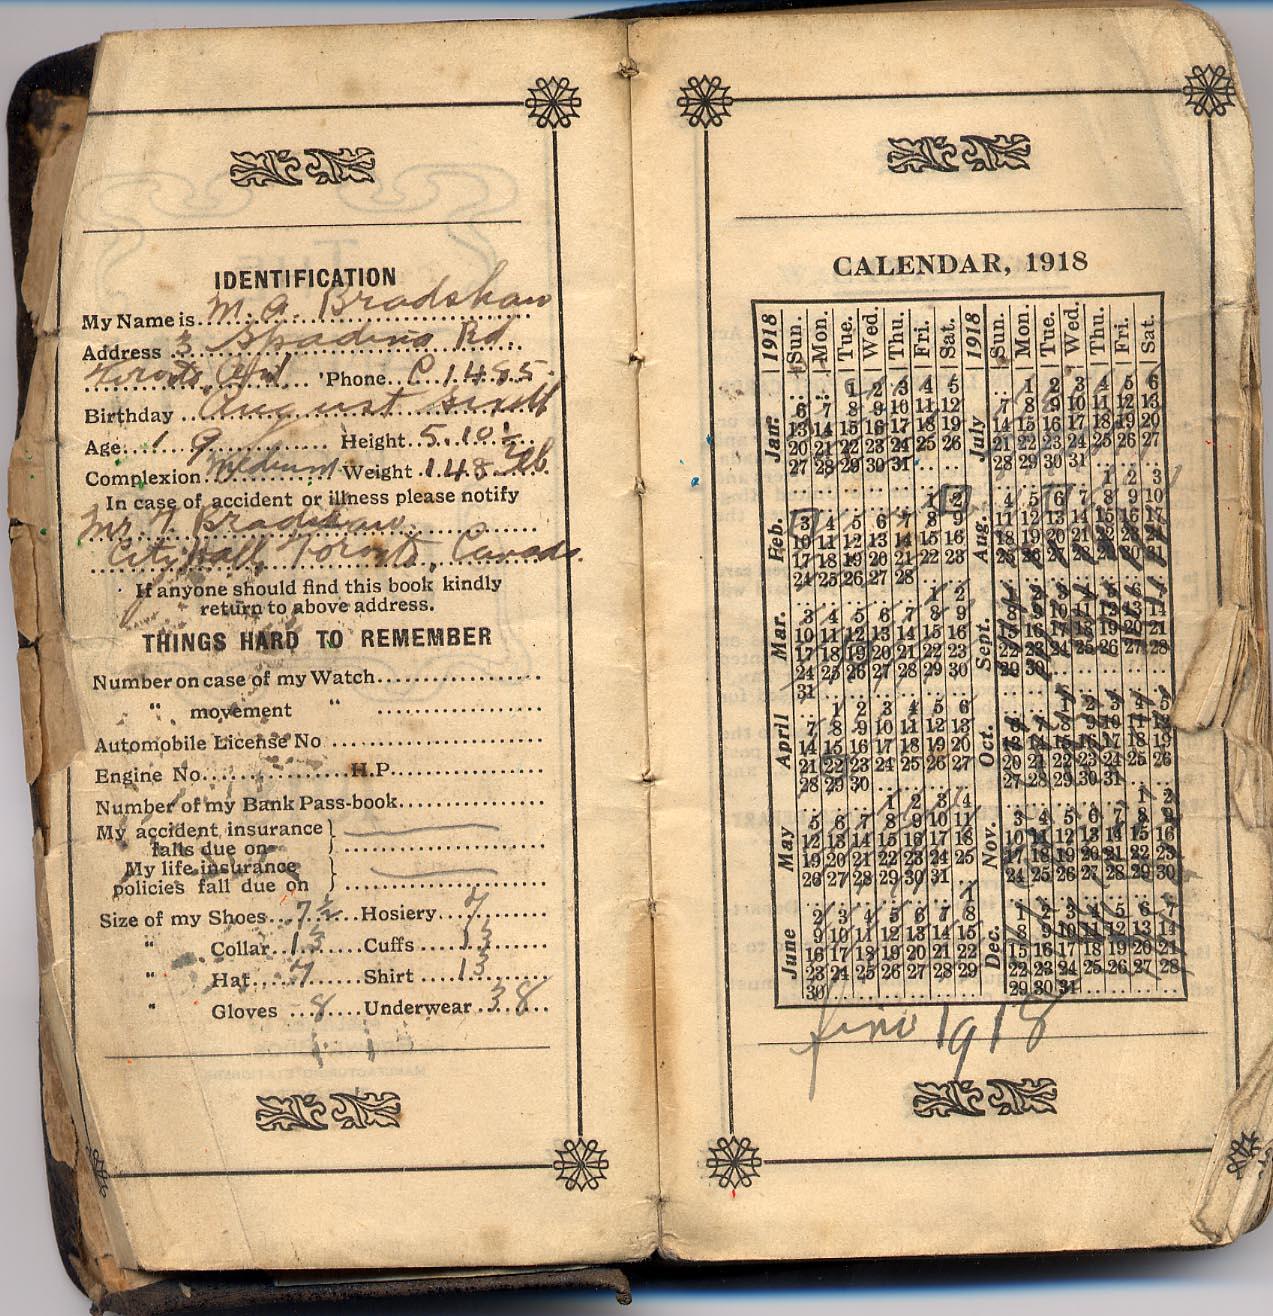 IDENTIFICATION
My Name is M. A. Bradshaw
Address 3 Spadina Rd.
Toronto, Ont Phone C. 1485
Birthday August sixth
Age 19 Height 5. 10½
Complexion Medium Weight 148 lb
In case of accident or illness please notify
Mr Bradshaw
City Hall, Toronto, Canada.
If anyone should find this book kindly
return to above address.
THINGS HARD TO REMEMBER
Number on case of my Watch
" movement "
Automobile License No
Engine No. H.P.
Number of my Bank Pass-book
My accident insurance
falls due on
My life insurance
policies fall due on
Size of my Shoes 7½ Hosiery
" Collar 15 Cuffs
" Hat 7 Shirt 15
" Gloves 8 Underwear 38
CALENDAR, 1918
1918 Sun. Mon. Tue. Wed. Thu. Fri. Sat.
Jan. 1 2 3 4 5
6 7 8 9 10 11 12
13 14 15 16 17 18 19
20 21 22 23 24 25 26
27 28 29 30 31
Feb. 1 2
3 4 5 6 7 8 9
10 11 12 13 14 15 16
17 18 19 20 21 22 23
24 25 26 27 28
Mar. 1 2
3 4 5 6 7 8 9
10 11 12 13 14 15 16
17 18 19 20 21 22 23
24 25 26 27 28 29 30
31
April 1 2 3 4 5 6
7 8 9 10 11 12 13
14 15 16 17 18 19 20
21 22 23 24 25 26 27
28 29 30
May 1 2 3 4
5 6 7 8 9 10 11
12 13 14 15 16 17 18
19 20 21 22 23 24 25
26 27 28 29 30 31
June 1
2 3 4 5 6 7 8
9 10 11 12 13 14 15
16 17 18 19 20 21 22
23 24 25 26 27 28 29
30
1918 Sun. Mon. Tue. Wed. Thu. Fri. Sat.
July 1 2 3 4 5 6
7 8 9 10 11 12 13
14 15 16 17 18 19 20
21 22 23 24 25 26 27
28 29 30 31
Aug. 1 2 3
4 5 6 7 8 9 10
11 12 13 14 15 16 17
18 19 20 21 22 23 24
25 26 27 28 29 30 31
Sept. 1 2 3 4 5 6 7
8 9 10 11 12 13 14
15 16 17 18 19 20 21
22 23 24 25 26 27 28
29 30
Oct. 1 2 3 4 5
6 7 8 9 10 11 12
13 14 15 16 17 18 19
20 21 22 23 24 25 26
27 28 29 30 31
Nov. 1 2
3 4 5 6 7 8 9
10 11 12 13 14 15 16
17 18 19 20 21 22 23
24 25 26 27 28 29 30
Dec. 1 2 3 4 5 6 7
8 9 10 11 12 13 14
15 16 17 18 19 20 21
22 23 24 25 26 27 28
29 30 31
1918